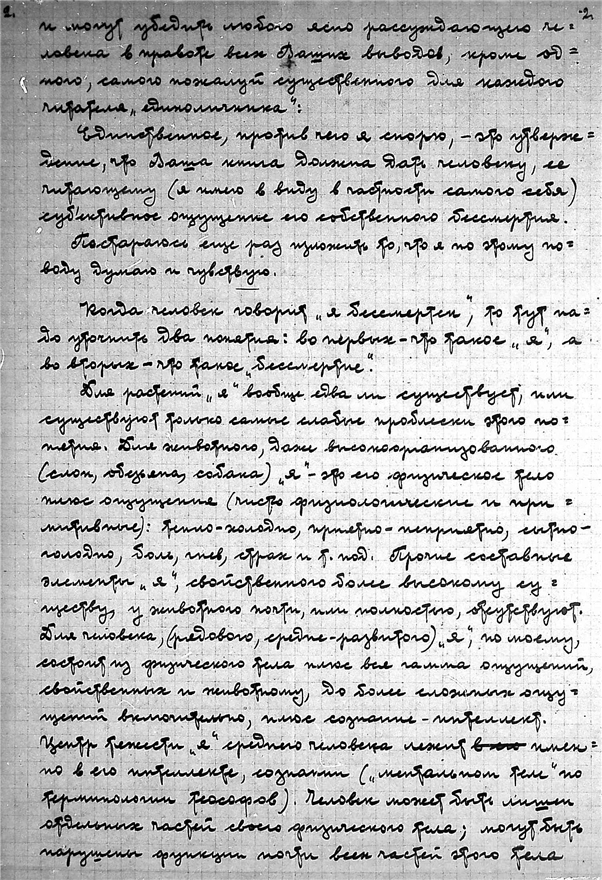 2. 2.
и могут убедить любого ясно рассуждающего че=
ловека в правоте всех Ваших выводов, кроме од=
ного, самого пожалуй существенного для каждого
читателя „единоличника":
Единственное, против чего я спорю, – это утверж=
дение, что Ваша книга должна дать человеку, ее
читающему (я имею в виду в частности самого себя)
субъективное ощущение его собственного бессмертия.
Постараюсь еще раз изложить то, что я по этому по=
воду думаю и чувствую.
Когда человек говорит „я бессмертен", то тут на=
до уточнить два понятия: во первых – что такое „я", а
во вторых – что такое „бессмертие".
Для растений „я" вообще едва ли существует, или
существуют только самые слабые проблески этого по=
нятия. Для животного, даже высокоорганизованного
(слон, обезьяна, собака) „я" – это его физическое тело
плюс ощущения (чисто физиологические и при=
митивные): тепло-холодно, приятно-неприятно, сытно-
голодно, боль, гнев, страх и т. под. Прочие составные
элементы „я", свойственного более высокому су=
ществу, у животного почти, или полностью, отсутствуют.
Для человека, (рядового, средне-развитого) „я", по моему,
состоит из физического тела плюс вся гамма ощущений,
свойственных и животному, до более сложных ощу=
щений включительно, плюс сознание – интеллект.
Центр тяжести „я" среднего человека лежит имен=
но в его интеллекте, сознании („ментальном теле" по
терминологии теософов). Человек может быть лишен
отдельных частей своего физического тела; могут быть
нарушены функции почти всех частей этого тела